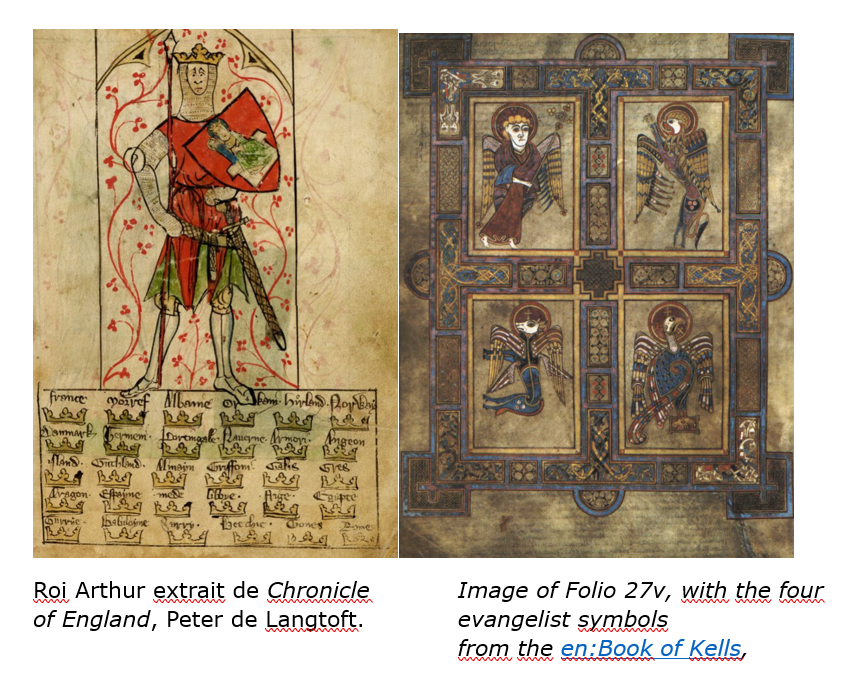 france norref Albanie Norway
Danmark Portingale Naverne Armori Angeon
Island Guthland Almain Griffoni Galis Gres
Aragon Espaine mede libye Aufrge Egipte
Surrye Babiloine
Roi Arthur extrait de Chronicle
of England, Peter de Langtoft.
Image of Folio 27v, with the four
evangelist symbols
from the en:Book of Kells,